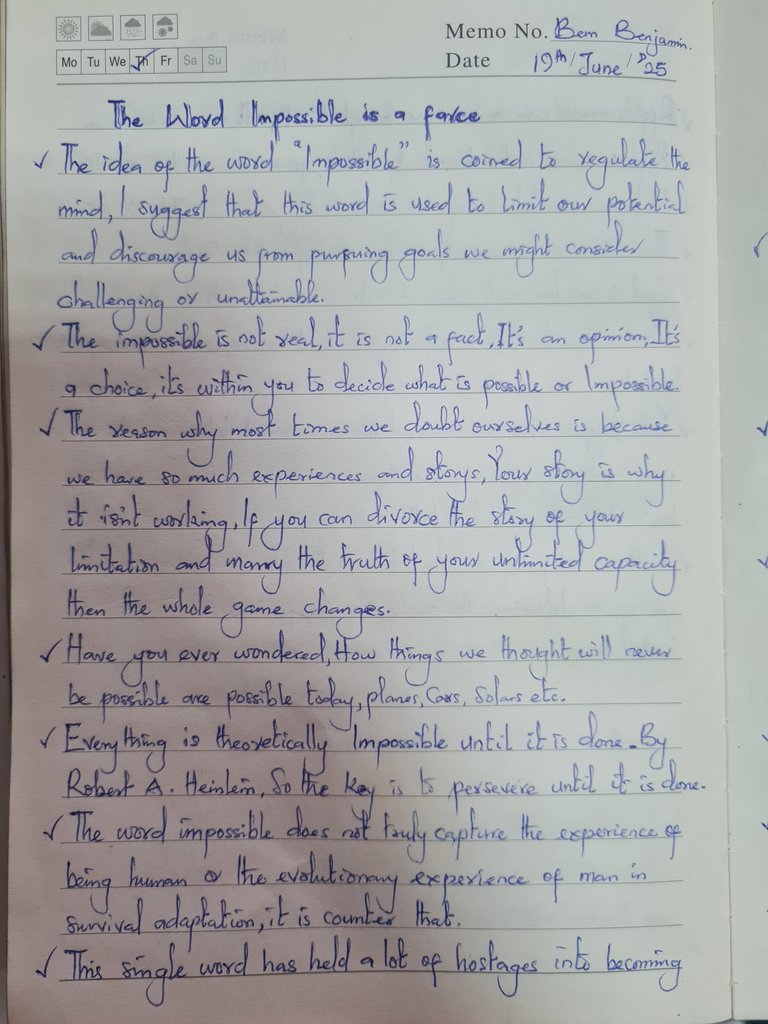 Memo No. Bem Benjamin.
Mo Tu We Th Fr Sa Su
Date 19th/June/25
The Word Impossible is a farce
✓ The idea of the word "Impossible" is coined to regulate the
mind, I suggest that this word is used to limit our potential
and discourage us from pursuing goals we might consider
challenging or unattainable.
✓ The impossible is not real, it is not a fact, It's an opinion, It's
a choice, it's within you to decide what is possible or Impossible.
✓ The reason why most times we doubt ourselves is because
we have so much experiences and storys, Your story is why
it isn't working, If you can divorce the story of your
limitation and marry the truth of your unlimited capacity
then the whole game changes.
✓ Have you ever wondered, How things we thought will never
be possible are possible today, planes, Cars, Solars etc.
✓ Everything is theoretically Impossible until it is done. By
Robert A. Heinlein, So the key is to persevere until it is done.
✓ The word impossible does not truly capture the experience of
being human or the evolutionary experience of man in
survival adaptation, it is counter that.
✓ This single word has held a lot of hostages into becoming